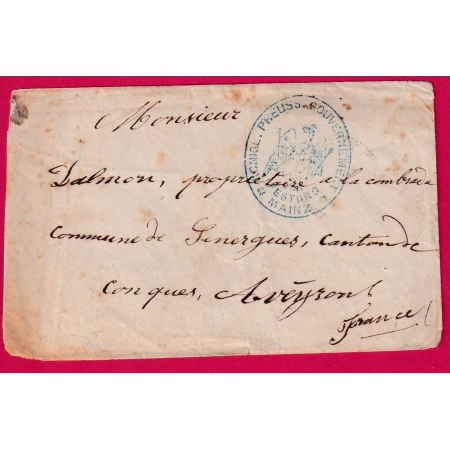 Monsieur
KÖNIGL. PREUSS. GOUVERNEMENT
FESTUNG
MAINZ
Dalmon, propriétaire à la combrède
Commune de Senergues, Canton de
Conques, Aveyron
France